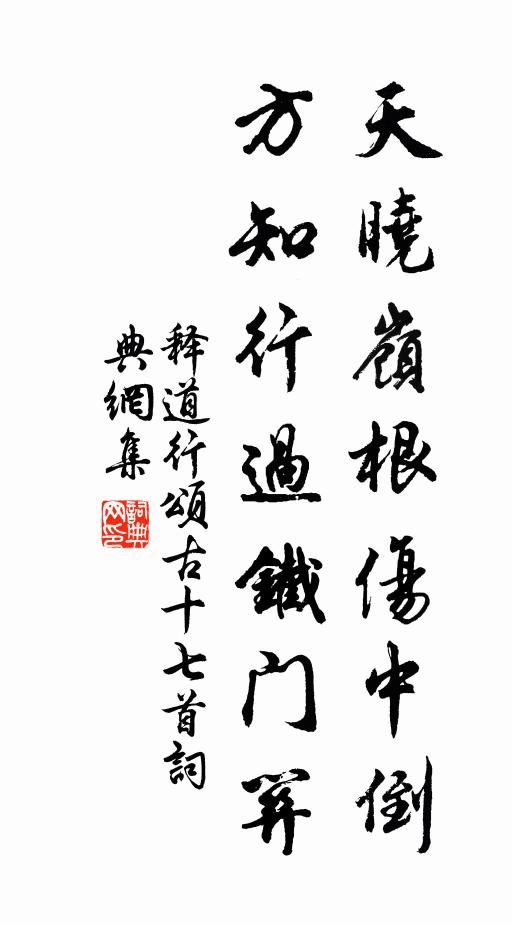 天曉嶺根傷中倒
方知行過鐵門關
释道行頌古十七首詞
典網集
詞典
网印